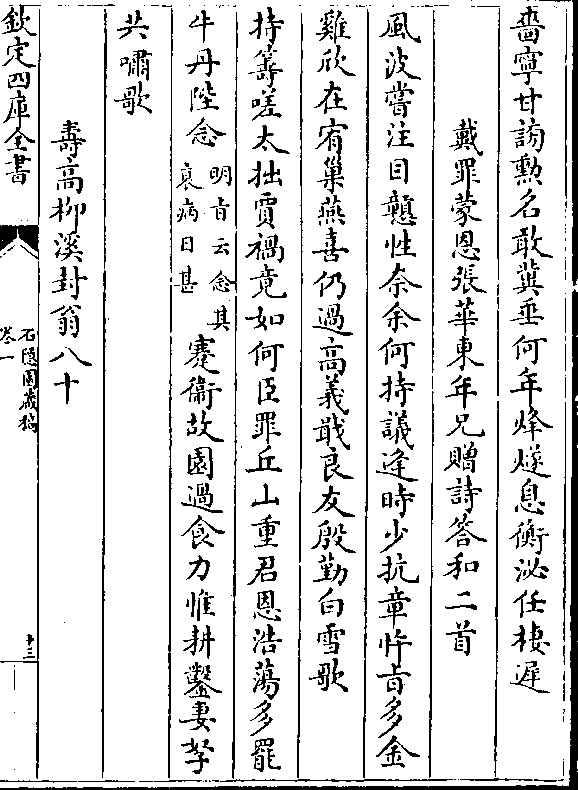 嗇寧甘訪勲名敢冀垂何年烽燧息衡泌任棲遲
戴罪蒙恩張華東年兄贈詩答和二首
風波嘗注目戇性奈余何持議逢時少抗章忤㫖多金
雞欣在宥巢燕喜仍過高義戢良友殷勤白雪歌
持籌嗟太拙賈禍竟如何臣罪丘山重君恩浩蕩多罷
牛丹陛念明㫖云念其衰病日甚蹇衞故園過食力惟耕鑿妻孥
共嘯歌
壽高柳溪封翁八十
欽定四庫全書
石隱園藏稿
卷一
十三